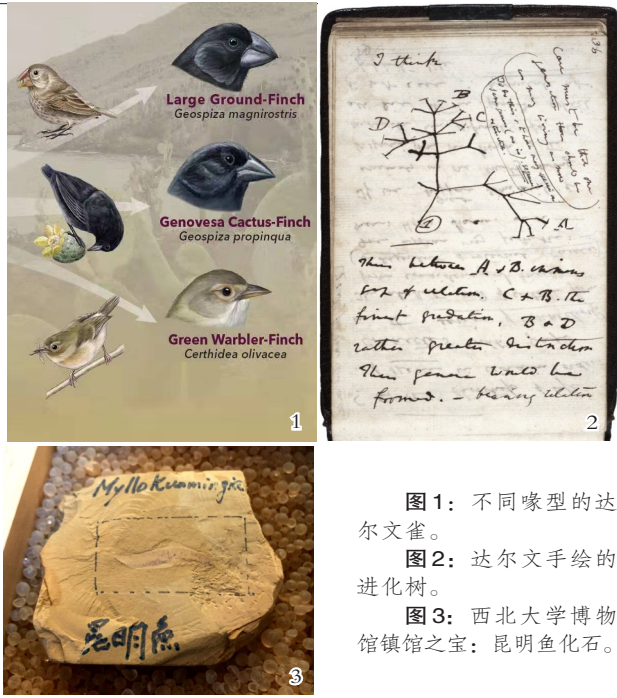 Large Ground-Finch
Geospiza magnirostris
Genovesa Cactus-Finch
Geospiza propinqua
Green Warbler-Finch
Certhidea olivacea
1
36
I think
Case must be that one
generation then should be
as many living as now
B
C
D
A
1
Thus between A & B. immense
gap of relation. C & B. the
finest gradation, B & D
rather greater distinction
Thus genera would be
formed. — bearing relation
2
Myllokunmingia
昆明魚
3
图1：不同喙型的达
尔文雀。
图2：达尔文手绘的
进化树。
图3：西北大学博物
馆镇馆之宝：昆明鱼化石。